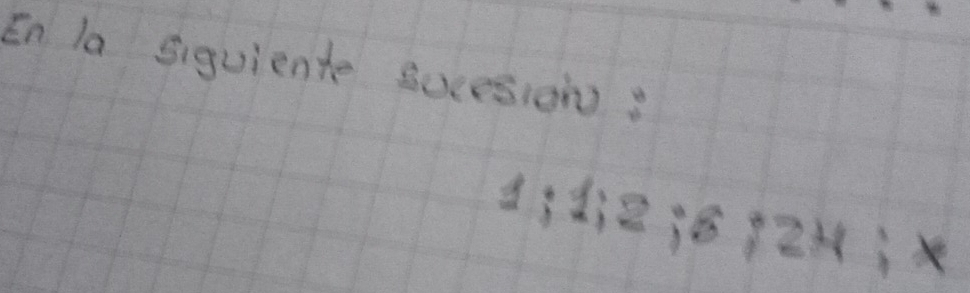 En la siguiente sucesión :
1 ; 1 ; 2 ; 6 ; 24 ; x